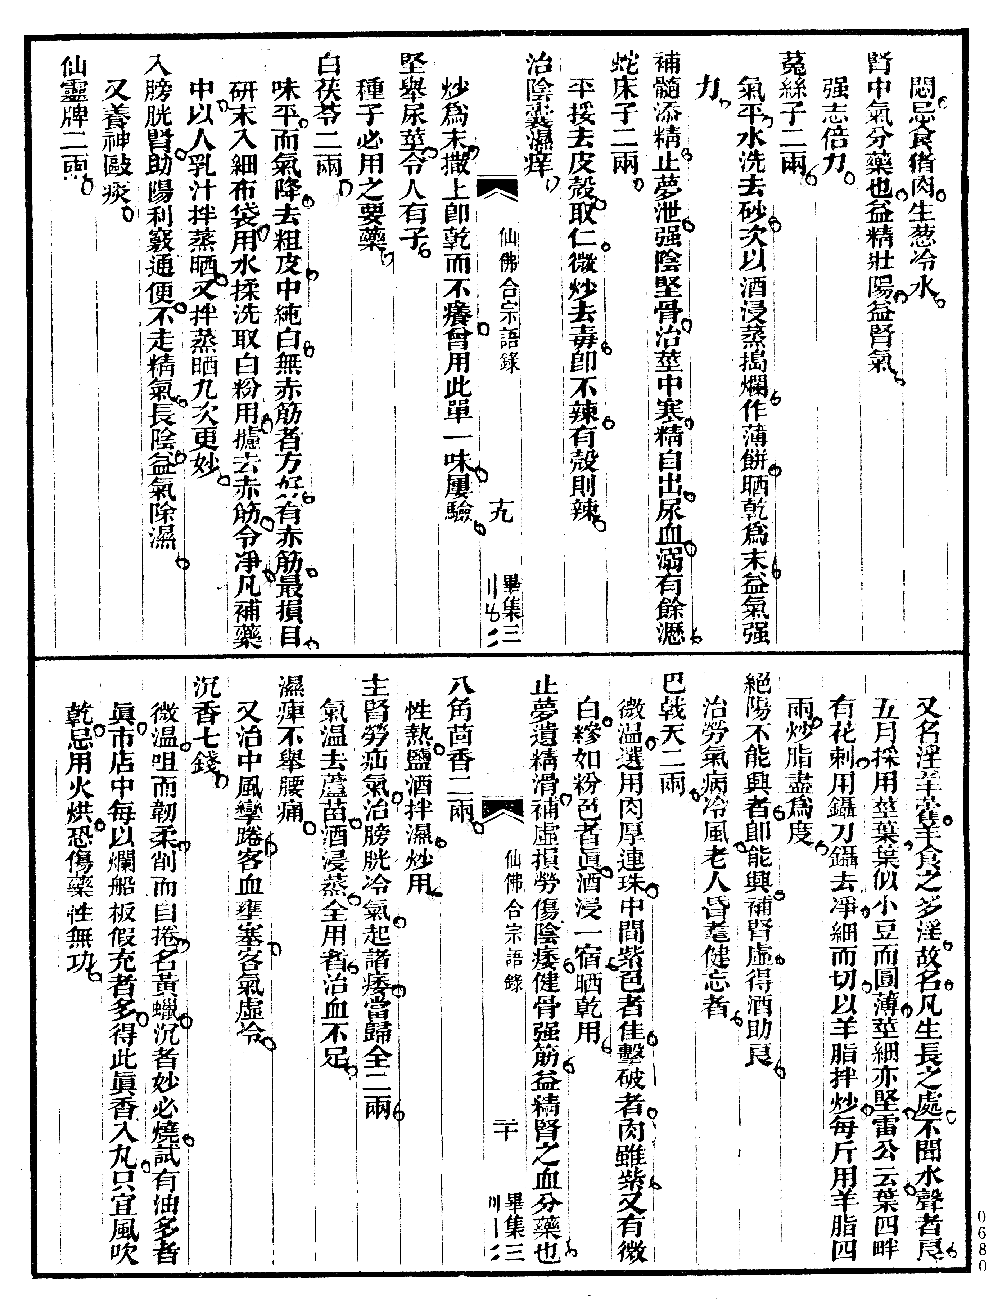 悶忌食猪肉生葱冷水
腎中氣分藥也益精壯陽益腎氣
强志倍力
菟絲子二兩
氣平水洗去砂次以酒浸蒸搗爛作薄餅晒乾爲末益氣强
力
補髓添精止夢泄强陰堅骨治莖中寒精自出尿血溺有餘瀝
蛇床子二兩
平挼去皮殼取仁微炒去毒卽不辣有殼則辣
治陰囊濕痒
仙佛合宗語錄
十九
畢集三
炒爲末撒上卽乾而不癢曾用此單一味屢驗
堅舉尿莖令人有子
種子必用之要藥
白茯苓二兩
味平而氣降去粗皮中純白無赤筋者方好有赤筋最損目
研末入細布袋用水揉洗取白粉用攄去赤筋令凈凡補藥
中以人乳汁拌蒸晒又拌蒸晒九次更妙
入膀胱腎助陽利竅通便不走精氣長陰益氣除濕
又養神敺痰
仙靈脾二兩
又名淫羊藿羊食之多淫故名凡生長之處不聞水聲者良
五月採用莖葉葉似小豆而圓薄莖細亦堅雷公云葉四畔
有花刺用鑷刀鑷去凈細而切以羊脂拌炒每斤用羊脂四
兩炒脂盡爲度
絕陽不能興者卽能興補腎虛得酒助良
治勞氣病冷風老人昏耄健忘者
巴戟天二兩
微温選用肉厚連珠中間紫色者佳擊破者肉雖紫又有微
白糝如粉色者眞酒浸一宿晒乾用
止夢遺精滑補虛損勞傷陰痿健骨强筋益精腎之血分藥也
仙佛合宗語錄
二十
畢集三
八角茴香二兩
性熱鹽酒拌濕炒用
主腎勞疝氣治膀胱冷氣起諸痿當歸全二兩
氣温去蘆苗酒浸蒸全用者治血不足
濕痺不舉腰痛
又治中風攣踡客血壅塞客氣虛冷
沉香七錢
微温咀而韌柔削而自捲名黃蠟沉者妙必燒試有油多者
眞市店中每以爛船板假充者多得此眞香入丸只宜風吹
乾忌用火烘恐傷藥性無功
0680